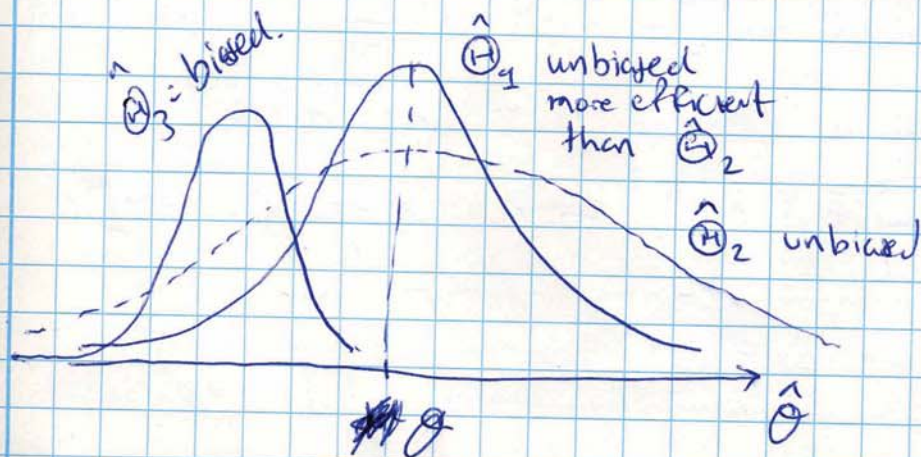 Θ̂₃ = biased.
Θ̂₁ unbiased
more efficient
than Θ̂₂
Θ̂₂ unbiased
θ
θ̂